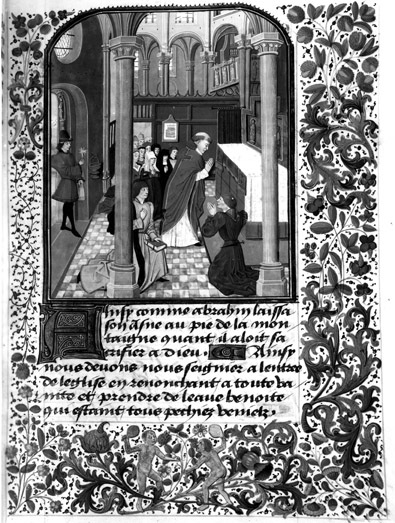 Ainsy comme abrahm laissa
son asne au pie de la mon
taigne quant il aloit sa
crifier a dieu. Ainsy
nous devons nous seigner a lentree
de leglise en renonchant a toute va
nite et prendre de leaue benoite
qui estaint tous pechies venielz